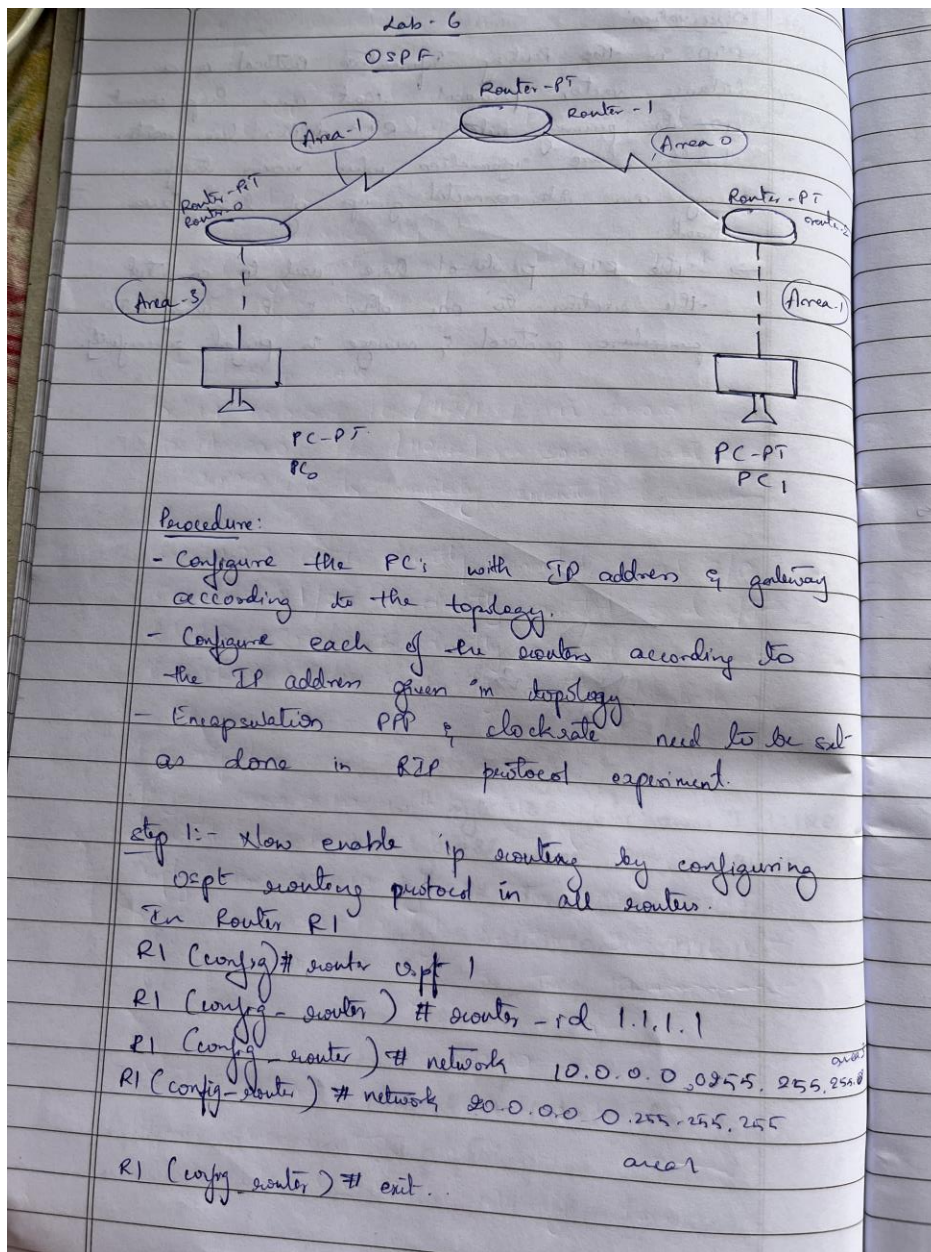 Lab - 6
OSPF.
Router-PT
Router - 1
Area-1
Area 0
Router-PT
Router-0
Router-PT
Area-3
Area-1
PC-PT
PC0
PC-PT
PC1
Procedure:
- Configure the PC's with IP address & gateway
according to the topology.
- Configure each of the routers according to
the IP address given in topology
- Encapsulation PPP & clockrate need to be set
as done in RIP protocol experiment.
step 1:- Now enable ip routing by configuring
ospf routing protocol in all routers.
In Router R1
R1 (config)# router ospf 1
R1 (config-router) # router-id 1.1.1.1
R1 (config-router) # network 10.0.0.0 0255. 255.
R1 (config-router) # network 20.0.0.0 0.255.255.255
area 1
R1 (config router) # exit..